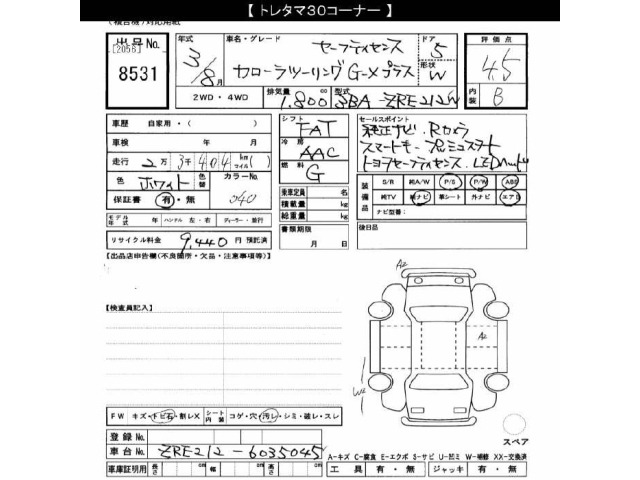 【 トレタマ30コーナー 】
(複合機)対応用紙
出品No. [2056] 8531
年式 3/8月
車名・グレード セーフティセンス カローラツーリング G-Xプラス
ドア 5 形状 W
評価点 4.5
2WD・4WD 排気量 1.800 cc 型式 3BA-ZRE212W
内装 B
車歴 自家用・( )
車検 年 月
走行 2万3千404km マイル( )
色 ホワイト 色替 カラーNo. 040
保証書 有・無
シフト FAT
冷房 AAC
燃料 G
セールスポイント
純正ナビ、Rカメラ
スマートキー プッシュスタート
トヨタセーフティセンス LEDヘッド
乗車定員 名
積載量 kg
総重量 kg
装備品 S/R 純A/W P/S P/W ABS
純TV 純ナビ 革シート 外ナビ エアB
ナビ型号:
モデル年式 年 ハンドル 左・右 ディーラー・並行
書類期限 月 日
後日品
リサイクル料金 9,440円 預託済
【出品店申告欄(不良箇所・欠品・注意事項等)】
【検査員記入】
A2
W2
A2
FW キズ・トビ石・割レX シート内装 コゲ・穴・汚レ・シミ・破レ・スレ
スペア
登録No.
車台No. ZRE212-6035045
A-キズ C-腐食 E-エクボ S-サビ U-凹ミ W-補修 XX-交換済
車庫証明用 長さ cm 幅 cm 高さ cm 工具 有・無 ジャッキ 有・無